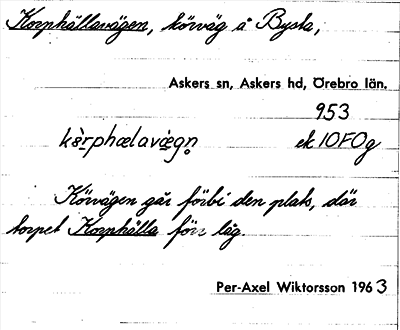 Korphällavägen, körväg å Bysta,
Askers sn, Askers hd, Örebro län.
953
kèrphælavægn̥ ek 10F0g
Körvägen går förbi den plats, där
torpet Korphälla förr låg.
Per-Axel Wiktorsson 1963